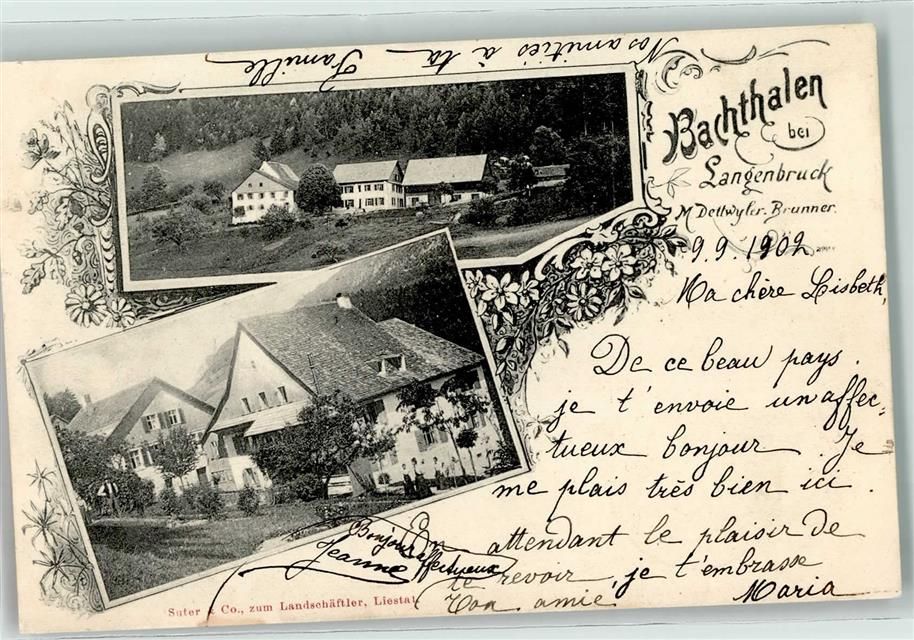 Nos amitiés à ta famille
Bachthalen
bei
Langenbruck
M Dettwyler-Brunner.
9.9.1902
Ma chère Lisbeth,
De ce beau pays
je t'envoie un affec-
tueux bonjour. Je
me plais très bien ici.
En attendant le plaisir de
te revoir, je t'embrasse
Ton amie Maria
Bonjour affectueux
Jeanne
Suter & Co., zum Landschäftler, Liestal